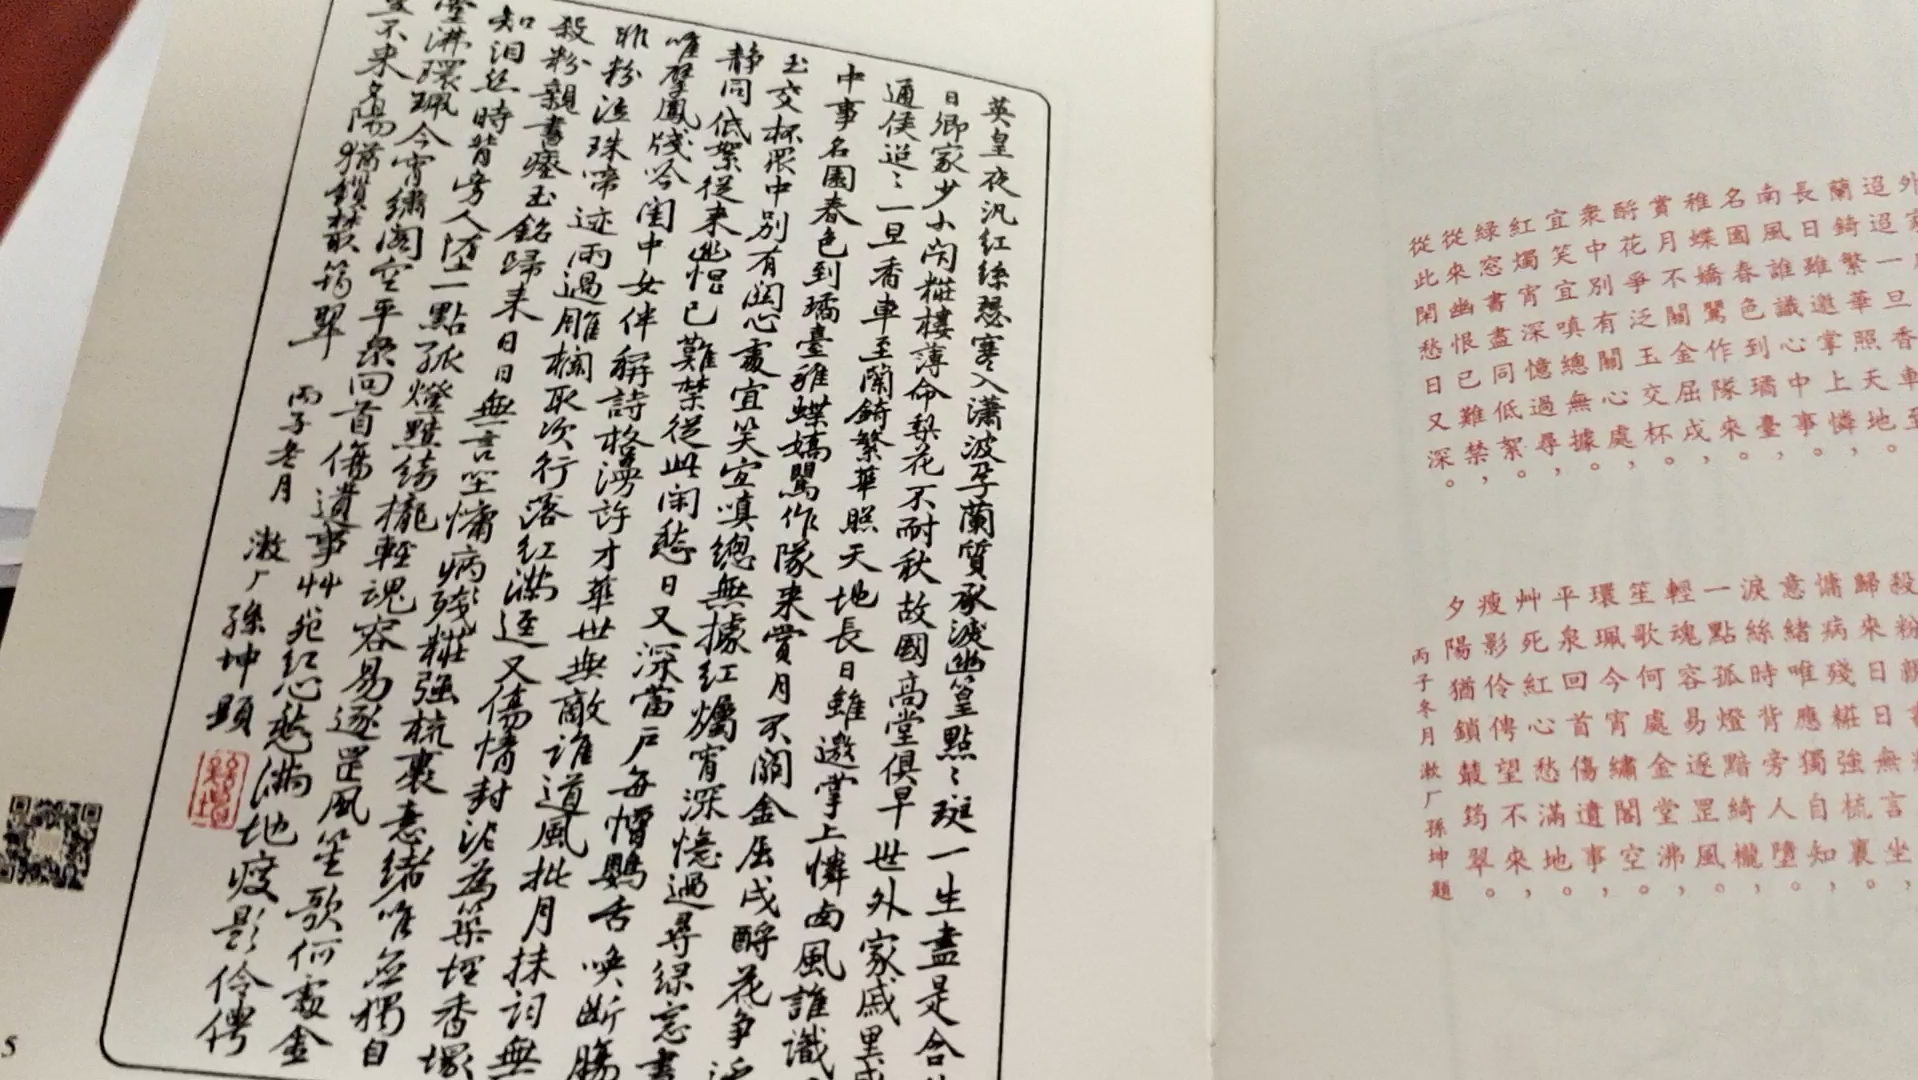 英皇夜汎紅絲瑟寒入瀟波孕蘭質承淚幽篁點〻斑一生盡是含
日卿家少小閉糚樓薄命梨花不耐秋故國高堂俱早世外家戚里
通侯迢〻一旦香車至蘭錡繁華照天地長日雖邀掌上憐南風誰識
中事名園春色到璚臺稚蝶嬌鶯作隊來賞月不關金屈戌酹花爭泛
玉交杯眾中別有關心處宜笑宜嗔總無據紅燭宵深憶過尋綠窓書
靜同低絮從來幽恨已難禁從此閑愁日又深當戶每憎鸚舌喚斷腸
唯擘鳳牋吟閨中女伴聯詩格漫許才華世無敵誰道風批月抹詞無
脂粉泣珠啼迹雨過雕欄取次行落紅滿逕又傷情封泥為築埋香塚
殺粉親書瘞玉銘歸來日日無言坐慵病殘糚強梳裹意緒唯應獨自
知淚絲時背旁人墮一點孤燈黯綺櫳輕魂容易逐罡風笙歌何處金
堂沸環珮今宵繡閣空平泉回首傷遺事艸死紅心愁滿地瘦影伶俜
望不來夕陽猶鎖菆筠翠
丙子冬月
漱厂孫坤題
5
外
迢
蘭錡一旦香車至
長日雖邀掌上憐
南風誰識心中事
名園春色到璚臺
稚蝶嬌鶯作隊來
賞月不關金屈戌
酹花爭泛玉交杯
眾中別有關心處
宜笑宜嗔總無據
紅燭宵深憶過尋
綠窓書盡同低絮
從來幽恨已難禁
從此閑愁日又深
殺粉
歸來日日無言坐
慵病殘糚強梳裹
意緒唯應獨自知
淚絲時背旁人墮
一點孤燈黯綺櫳
輕魂容易逐罡風
笙歌何處金堂沸
環珮今宵繡閣空
平泉回首傷遺事
艸死紅心愁滿地
瘦影伶俜望不來
夕陽猶鎖菆筠翠
丙子冬月漱厂孫坤題